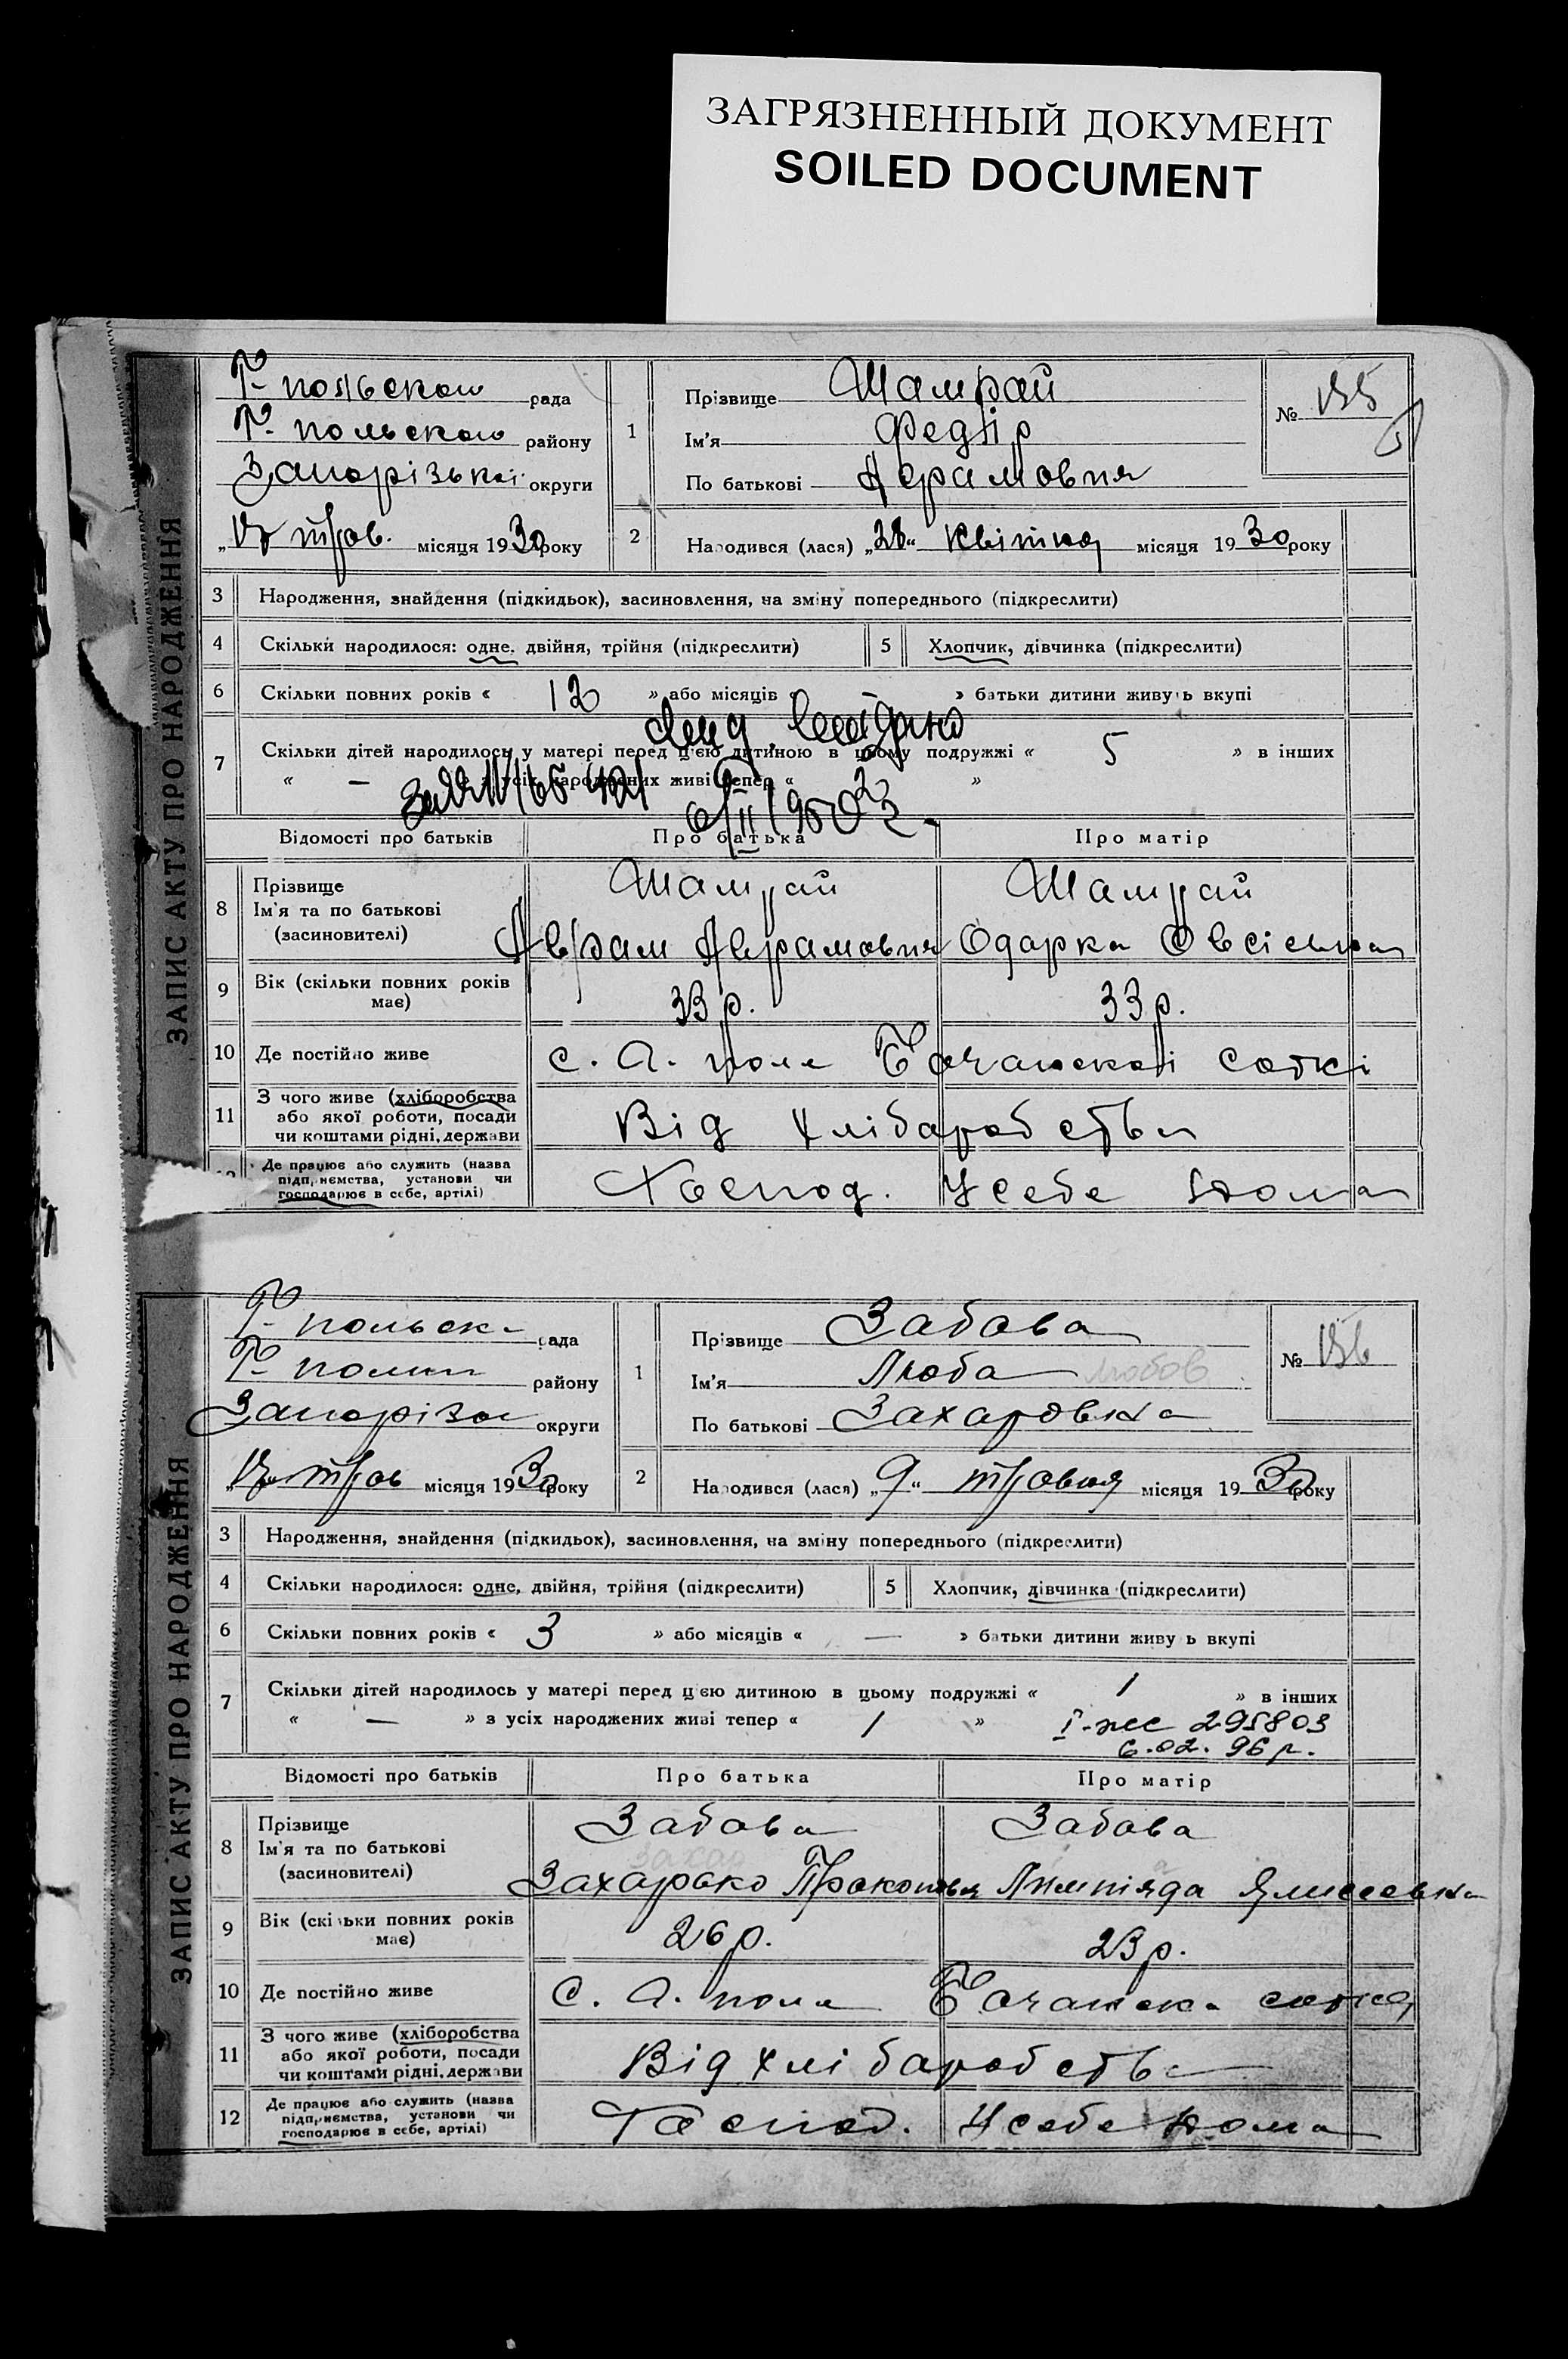 ЗАГРЯЗНЕННЫЙ ДОКУМЕНТ
SOILED DOCUMENT
ЗАПИС АКТУ ПРО НАРОДЖЕННЯ
Г-польской рада
Г-польской району
Запорізькоі округи
трав. місяця 1930 року
1 Прізвище Шамрай
Ім'я Федір
По батькові Аврамовия
№
2 Народився (лася) „28“ Квітня місяця 1930 року
3 Народження, знайдення (підкидьок), засиновлення, на зміну попереднього (підкреслити)
4 Скільки народилося: одне, двійня, трійня (підкреслити) 5 Хлопчик, дівчинка (підкреслити)
6 Скільки повних років « 12 » або місяців « » батьки дитини живуть вкупі
7 Скільки дітей народилось у матері перед цією дитиною в цьому подружжі « 5 » в інших
« — » з усіх народжених живі тепер « »
Відомості про батьків Про батька Про матір
8 Прізвище Ім'я та по батькові (засиновителі)
Шамрай Шамрай
Аврам Аврамовия Одарка Овсієвна
9 Вік (скільки повних років має) 33 р. 33 р.
10 Де постійно живе с. Г. поле Бочанскоі соткі
11 З чого живе (хліборобства або якої роботи, посади чи коштами рідні, держави
Від хлібаробства
12 Де працює або служить (назва підприємства, установи чи господарює в себе, артілі)
Господ. Усебе дома
ЗАПИС АКТУ ПРО НАРОДЖЕННЯ
Г-польск рада
Г- району
Запорізк округи
трав місяця 1930 року
1 Прізвище Забава
Ім'я Люба Любов
По батькові Захаровна
№
2 Народився (лася) „9“ травня місяця 1930 року
3 Народження, знайдення (підкидьок), засиновлення, на зміну попереднього (підкреслити)
4 Скільки народилося: одне, двійня, трійня (підкреслити) 5 Хлопчик, дівчинка (підкреслити)
6 Скільки повних років « 3 » або місяців « — » батьки дитини живуть вкупі
7 Скільки дітей народилось у матері перед цією дитиною в цьому подружжі « 1 » в інших
« — » з усіх народжених живі тепер « 1 »
І-жс 295803
6.02.96 р.
Відомості про батьків Про батька Про матір
8 Прізвище Ім'я та по батькові (засиновителі)
Забава Забава
Захарько Прокоповия Лимпіяда Ялисеевна
9 Вік (скільки повних років має) 26 р. 23 р.
10 Де постійно живе с. Г. поле Бочанска сотня
11 З чого живе (хліборобства або якої роботи, посади чи коштами рідні, держави
Від хлібаробства
12 Де працює або служить (назва підприємства, установи чи господарює в себе, артілі)
Господ. Усебе дома